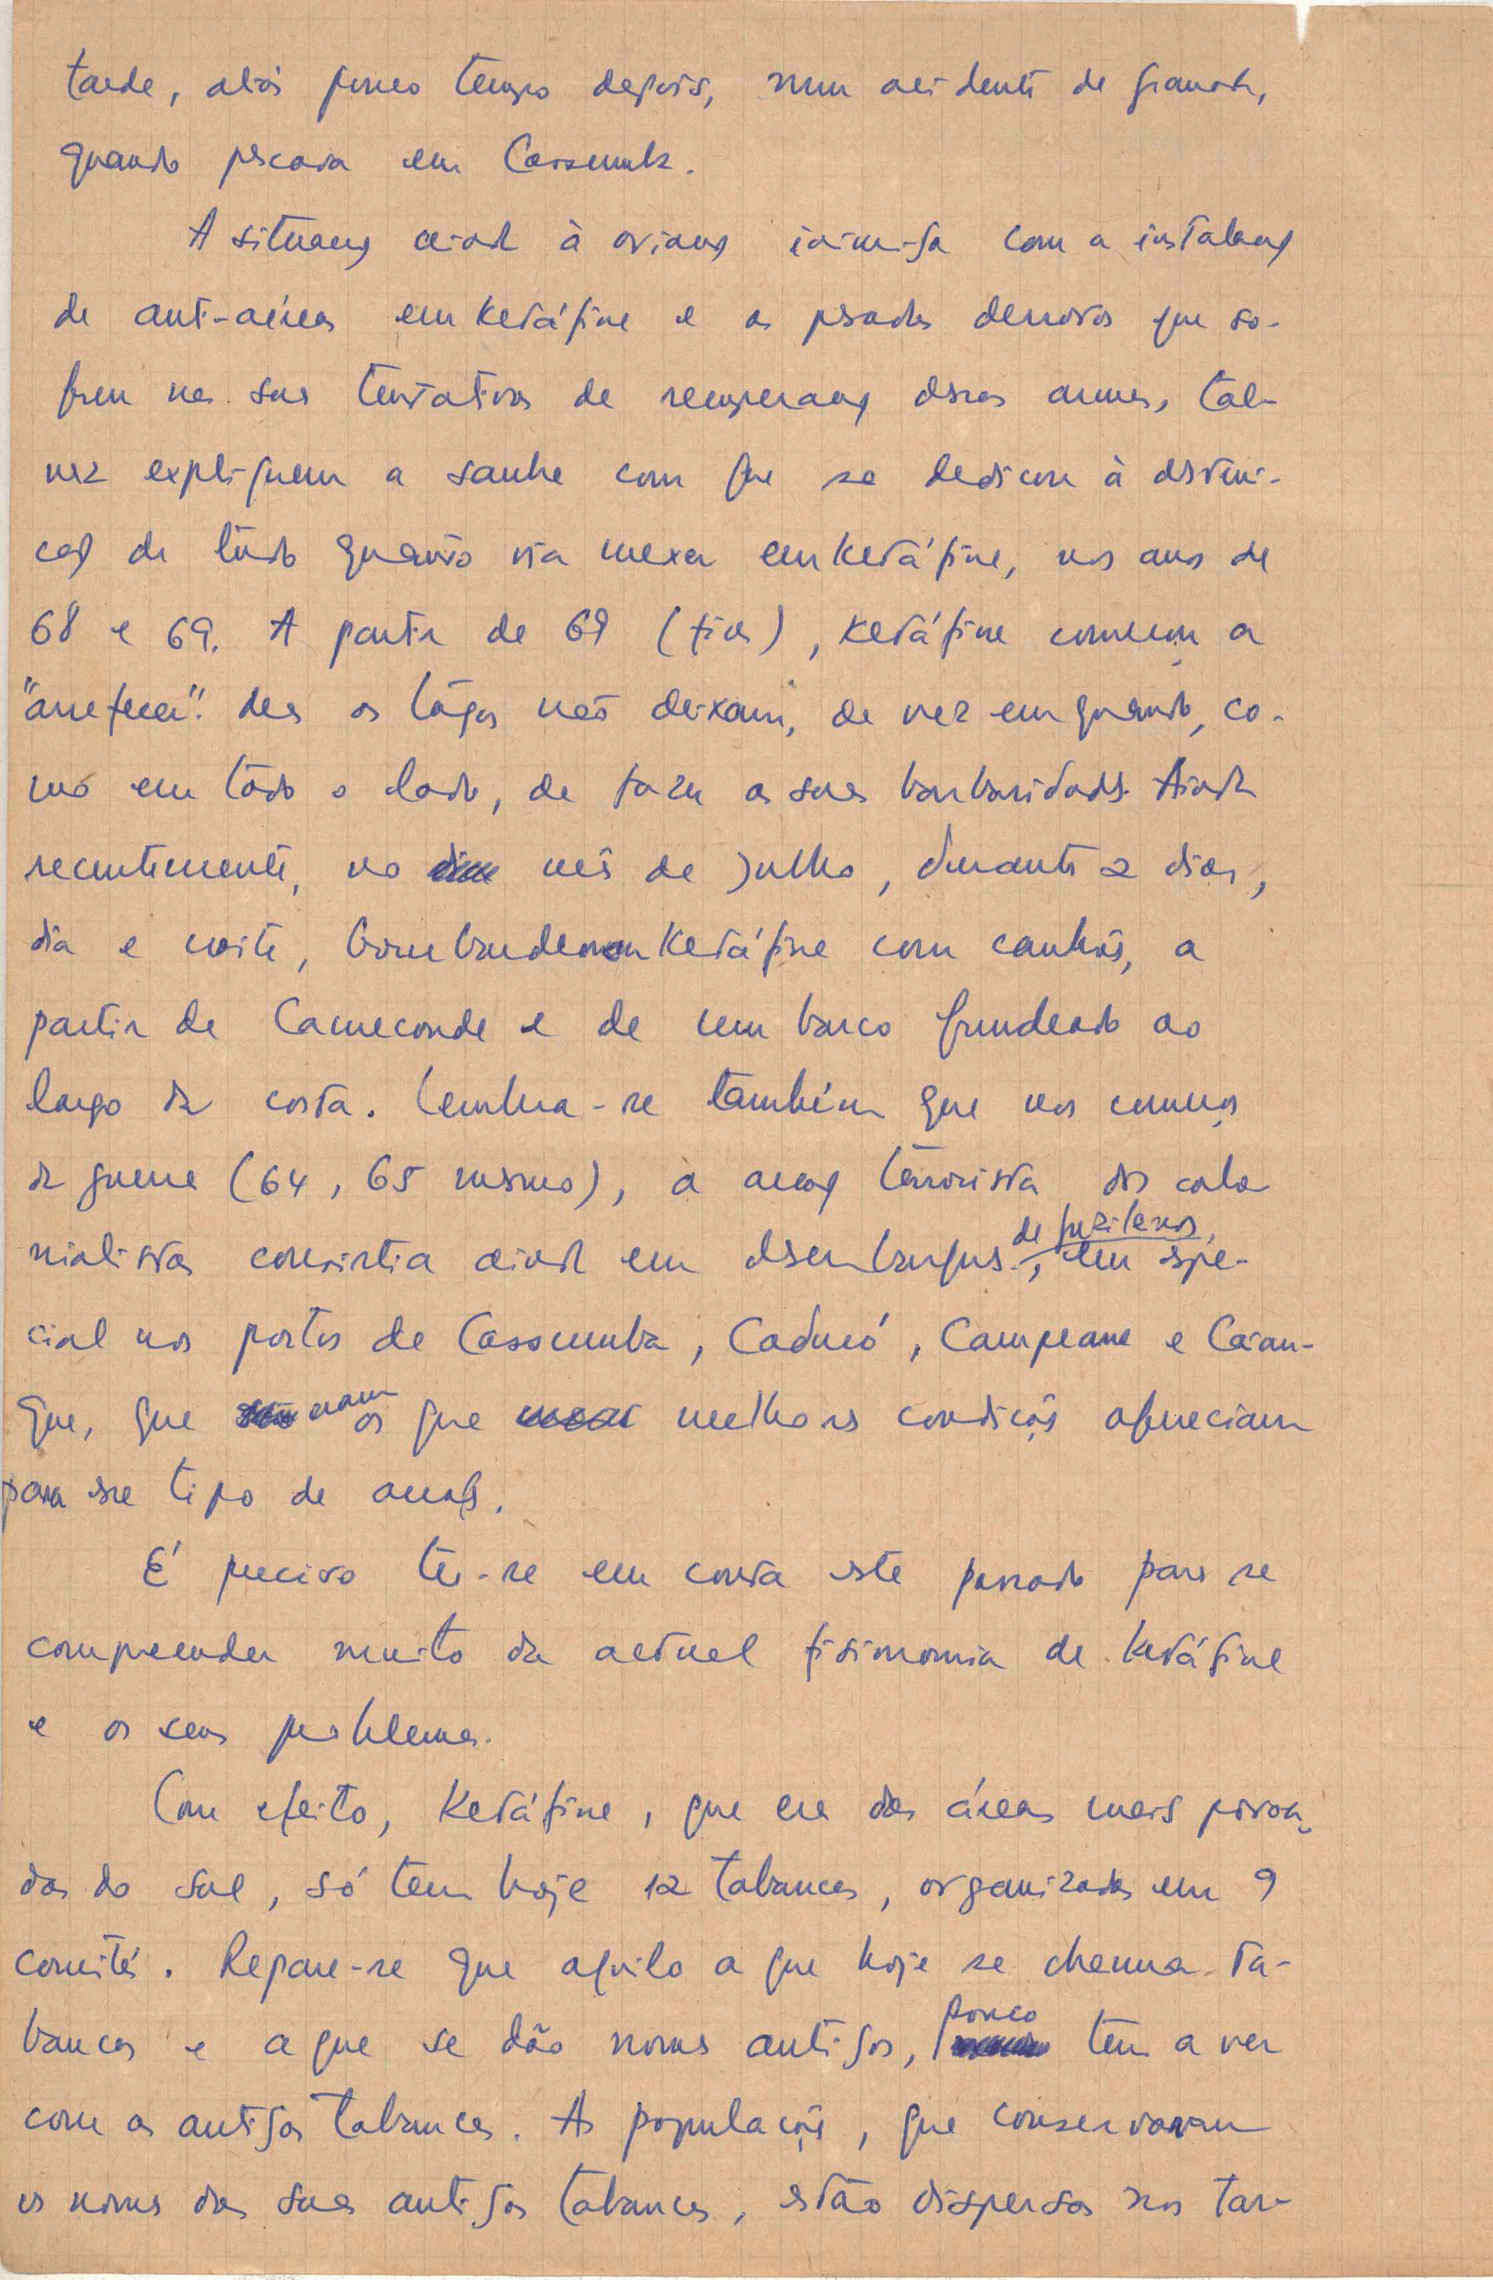 tarde, aliás pouco tempo depois, num acidente de granada,
quando pescava em Cassumba.
A situação criada à aviação inimiga com a instalação
de anti-aéreas em Ketáfine e as pesadas derrotas que so-
freu nas suas tentativas de recuperação dessas armas, tal-
vez expliquem a sanha com que se dedicou à destrui-
ção de tudo quanto via mexer em Ketáfine, nos anos de
68 e 69. A partir de 69 (fins), Ketáfine começou a
"arrefecer". Mas os tugas não deixam, de vez em quando, co-
mo em todo o lado, de fazer as suas barbaridades. Ainda
recentemente, no mês de Julho, durante 2 dias,
dia e noite, bombardearam Ketáfine com canhões, a
partir de Cameconde e de um barco fundeado ao
largo da costa. Lembra-se também que nos começos
da guerra (64, 65 mesmo), a acção terrorista dos colo
nialistas consistia ainda em desembarques de fuzileiros, em espe-
cial nos portos de Cassumba, Caducó, Campeane e Caian-
que, que eram os que melhores condições ofereciam
para esse tipo de acção.
É preciso ter-se em conta este passado para se
compreender muito da actual fisionomia de Ketáfine
e os seus problemas.
Com efeito, Ketáfine, que era das áreas mais povoa-
das do sul, só tem hoje 12 tabancas, organizadas em 9
comités. Repare-se que aquilo a que hoje se chama ta-
bancas e a que se dão nomes antigos, pouco tem a ver
com as antigas tabancas. As populações, que conservaram
os nomes das suas antigas tabancas, estão dispersas nos tar-